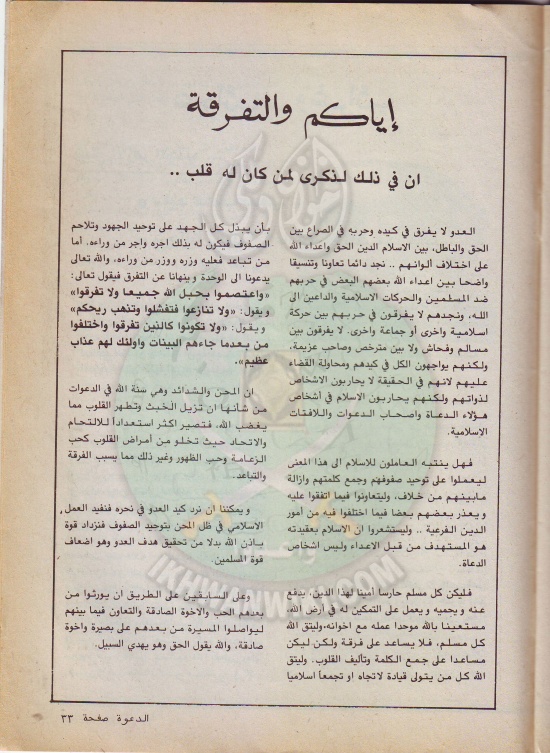 إياكم والتفرقة
ان في ذلك لذكرى لمن كان له قلب ..
العدو لا يفرق في كيده وحربه في الصراع بين
الحق والباطل، بين الاسلام الدين الحق واعداء الله
على اختلاف ألوانهم .. نجد دائما تعاونا وتنسيقا
واضحا بين اعداء الله بعضهم البعض في حربهم
ضد المسلمين والحركات الاسلامية والداعين الى
الله، ونجدهم لا يفرقون في حربهم بين حركة
اسلامية واخرى أو جماعة واخرى. لا يفرقون بين
مسالم وفحاش ولا بين مترخص وصاحب عزيمة،
ولكنهم يواجهون الكل في كيدهم ومحاولة القضاء
عليهم لانهم في الحقيقة لا يحاربون الاشخاص
لذواتهم ولكنهم يحاربون الاسلام في أشخاص
هؤلاء الدعاة واصحاب الدعوات واللافتات
الاسلامية.
فهل ينتبه العاملون للاسلام الى هذا المعنى
ليعملوا على توحيد صفوفهم وجمع كلمتهم وازالة
مابينهم من خلاف، وليتعاونوا فيما اتفقوا عليه
ويعذر بعضهم بعضا فيما اختلفوا فيه من أمور
الدين الفرعية .. وليستشعروا ان الاسلام بعقيدته
هو المستهدف من قبل الاعداء وليس اشخاص
الدعاة.
فليكن كل مسلم حارسا أمينا لهذا الدين، يدفع
عنه ويحميه ويعمل على التمكين له في أرض الله،
مستعينا بالله موحدا عمله مع اخوانه، وليتق الله
كل مسلم، فلا يساعد على فرقة ولكن ليكن
مساعدا على جمع الكلمة وتأليف القلوب. وليتق
الله كل من يتولى قيادة لاتجاه او تجمعاً اسلاميا
بأن يبذل كل الجهد على توحيد الجهود وتلاحم
الصفوف فيكون له بذلك اجره واجر من وراءه. أما
من تباعد فعليه وزره ووزر من وراءه، والله تعالى
يدعونا الى الوحدة وينهانا عن التفرق فيقول تعالى:
«واعتصموا بحبل الله جميعا ولا تفرقوا»
ويقول: «ولا تنازعوا فتفشلوا وتذهب ريحكم»
ويقول: «ولا تكونوا كالذين تفرقوا واختلفوا
من بعدما جاءهم البينات واولئك لهم عذاب
عظيم».
ان المحن والشدائد وهي سنة الله في الدعوات
من شأنها ان تزيل الخبث وتطهر القلوب مما
يغضب الله. فتصير اكثر استعداداً للالتحام
والاتحاد حيث تخلو من أمراض القلوب كحب
الزعامة وحب الظهور وغير ذلك مما يسبب الفرقة
والتباعد.
ويمكننا ان نرد كيد العدو في نحره فنفيد العمل
الاسلامي في ظل المحن بتوحيد الصفوف فنزداد قوة
باذن الله بدلا من تحقيق هدف العدو وهو اضعاف
قوة المسلمين.
وعلى السابقين على الطريق ان يورثوا من
بعدهم الحب والاخوة الصادقة والتعاون فيما بينهم
ليواصلوا المسيرة من بعدهم على بصيرة واخوة
صادقة، والله يقول الحق وهو يهدي السبيل.
IKHWANWIKI.COM
الدعوة صفحة ٣٣